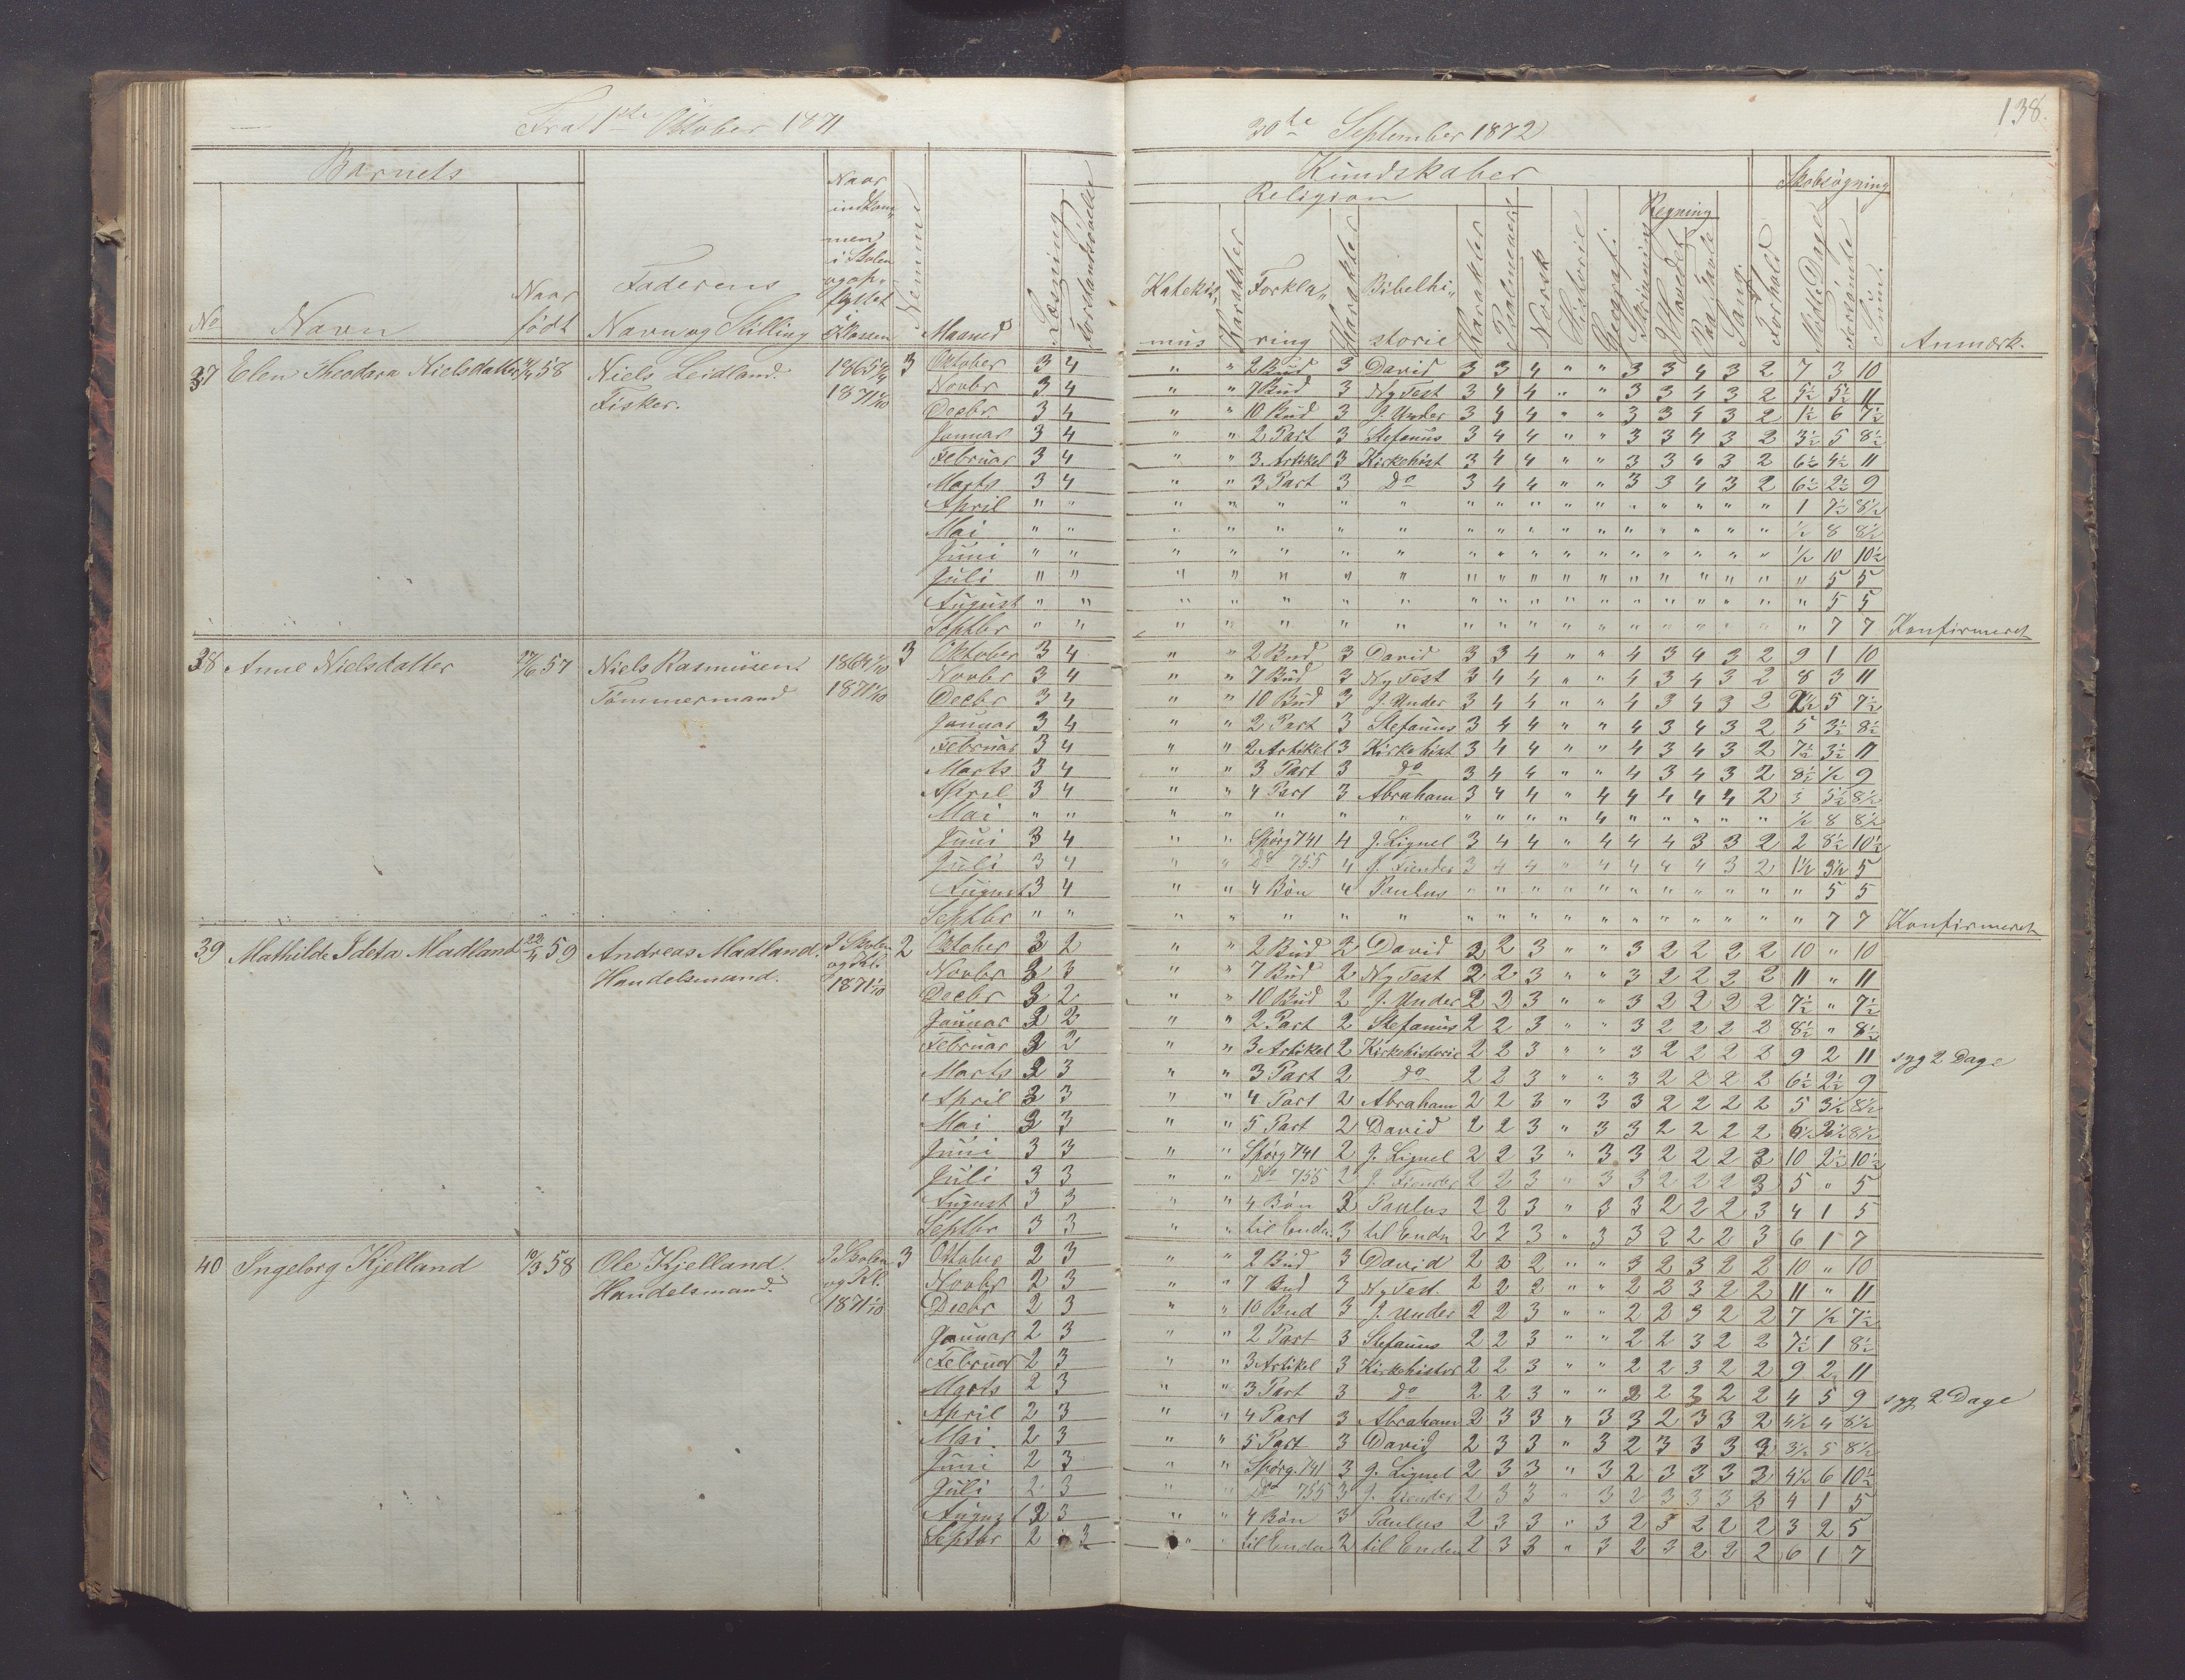 Fra 1ste Oktober 1871
30te September 1872
138.
Barnets
Kundskaber
Skolesøgning
Religion
Regning
No Navn
Naar født
Faderens Navn og Stilling
Naar indkommen i Skolen og opflyttet i Klassen
Nemme
Maaned
Læsning
Forstandsøvelse
Katekismus Karakter Forklaring Karakter Bibelhistorie Karakter Psalmevers Norsk Historie Geografi Skrivning I Hovedet Paa Tavle Sang Forhold Mødte Dage Forsømte Sum. Anmærk.
37 Elen Theodora Nielsdatter 58 Niels Leidland. 1865 3 Oktober 3 4 " " 2 Bud 3 David 3 3 4 " " 3 3 4 3 2 7 3 10
Fisker. 1871 1/10 Novbr 3 4 " " 7 Bud 3 Ny Test 3 4 4 " " 3 3 4 3 2 5½ 5½ 11
Decbr 3 4 " " 10 Bud 3 J. Under 3 4 4 " " 3 3 4 3 2 1½ 6 7½
Januar 3 4 " " 2 Part 3 Stefanus 3 4 4 " " 3 3 4 3 2 3½ 5 8½
Februar 3 4 " " 3. Artikel 3 Kirkehist 3 4 4 " " 3 3 4 3 2 6½ 4½ 11
Marts 3 4 " " 3 Part 3 Do 3 4 4 " " 3 3 4 3 2 6½ 2½ 9
April " " " " " " " " " " " " " " " " " 1 7½ 8½
Mai " " " " " " " " " " " " " " " " " ½ 8 8½
Juni " " " " " " " " " " " " " " " " " ½ 10 10½
Juli " " " " " " " " " " " " " " " " " " 5 5
August " " " " " " " " " " " " " " " " " " 5 5
Septbr " " " " " " " " " " " " " " " " " " 7 7 Konfirmeret
38 Anne Nielsdatter 57 Niels Rasmusen. 1864 1/10 3 Oktober 3 4 " " 2 Bud 3 David 3 3 4 " " 4 3 4 3 2 9 1 10
Tømmermand 1871 1/10 Novbr 3 4 " " 7 Bud 3 Ny Test 3 4 4 " " 4 3 4 3 2 8 3 11
Decbr 3 4 " " 10 Bud 3 J. Under 3 4 4 " " 4 3 4 3 2 2½ 5 7½
Januar 3 4 " " 2 Part 3 Stefanus 3 4 4 " " 4 3 4 3 2 5 3½ 8½
Februar 3 4 " " 2 Artikel 3 Kirkehist 3 4 4 " " 4 3 4 3 2 7½ 3½ 11
Marts 3 4 " " 3 Part 3 do 3 4 4 " " 4 3 4 3 2 8½ ½ 9
April 3 4 " " 4 Part 3 Abraham 3 4 4 " 4 4 4 4 4 2 3 5½ 8½
Mai " " " " " " " " " " " 4 " " " " " ½ 8 8½
Juni 3 4 " " Spørg 741 4 J. Lignel 3 4 4 " 4 4 4 3 3 2 2 8½ 10½
Juli 3 4 " " Do 755 4 J. Fiender 3 4 4 " 4 4 4 4 3 2 1½ 3½ 5
August 3 4 " " 4 Bøn 4 Paulus " " " " " " " " " " " 5 5
Septbr " " " " " " " " " " " " " " " " " " 7 7 Konfirmeret
39 Mathilde Ideta Madland 22/4 59 Andreas Madland. I Skolen 2 Oktober 3 2 " " 2 Bud 2 David 2 2 3 " " 3 2 2 2 2 10 " 10
Handelsmand. og Kl. Novbr 3 3 " " 7 Bud 2 Ny Test 2 2 3 " " 3 2 2 2 2 11 " 11
1871 1/10 Decbr 3 2 " " 10 Bud 2 J. Under 2 2 3 " " 3 2 2 2 2 7½ " 7½
Januar 3 2 " " 2 Part 2 Stefanus 2 2 3 " " 3 2 2 2 2 8½ " 8½
Februar 3 2 " " 3 Artikel 2 Kirkehistorie 2 2 3 " " 3 2 2 2 2 9 2 11 syg 2 Dage
Marts 3 3 " " 3 Part 2 do 2 2 3 " " 3 2 2 2 2 6½ 2½ 9
April 3 3 " " 4 Part 2 Abraham 2 2 3 " 3 3 2 2 2 2 5 3½ 8½
Mai 3 3 " " 5 Part 2 David 2 2 3 " 3 3 2 2 2 2 6½ 2½ 8½
Juni 3 3 " " Spørg 741 2 J. Lignel 2 2 3 " 3 3 2 2 2 3 10 2½ 10½
Juli 3 3 " " do 755 2 J. Fiender 2 2 3 " 3 3 2 2 2 3 5 " 5
August 3 3 " " 4 Bøn 3 Paulus 2 2 3 " 3 3 2 2 2 3 4 1 5
Septbr 3 3 " " til Enden 3 til Enden 2 3 3 " 3 3 2 2 2 3 6 1 7
40 Ingeborg Kjelland 10/3 58 Ole Kjelland. I Skolen 3 Oktober 2 3 " " 2 Bud 3 David 2 2 2 " " 3 2 3 2 2 10 " 10
Handelsmand. og Kl. Novbr 2 3 " " 7 Bud 3 Ny Test. 2 2 2 " " 2 2 3 2 2 11 " 11
1871 1/10 Decbr 2 3 " " 10 Bud 3 J. Under 2 2 3 " " 2 2 3 2 2 7 ½ 7½
Januar 2 3 " " 2 Part 3 Stefanus 2 2 3 " " 2 2 3 2 2 7½ 1 8½
Februar 2 3 " " 3 Artikel 3 Kirkehistor 2 2 3 " " 2 2 3 2 2 9 2 11
Marts 2 3 " " 3 Part 3 do 2 2 3 " " 2 2 3 2 2 4 5 9 syg 2 Dage
April 2 3 " " 4 Part 3 Abraham 2 3 3 " 3 3 2 3 3 2 4½ 4 8½
Mai. 2 3 " " 5 Part 3 David 2 3 3 " 3 2 3 3 3 3 3½ 5 8½
Juni 2 3 " " Spørg. 741 3 J. Lignel 2 3 3 " 3 2 3 3 3 3 4½ 6 10½
Juli 2 3 " " Do 755 3 J. Fiender 2 3 3 " 3 2 3 3 3 3 4 1 5
August 2 3 " " 4 Bøn 3 Paulus 2 3 3 " 3 2 3 2 2 2 3 2 5
Septbr 2 3 " " til Enden 2 til Enden 2 3 3 " 3 2 3 2 2 2 6 1 7